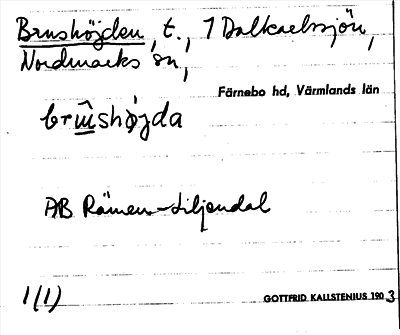 Brnshöjden, t., 1 Dalkarlssjön,
Nordmarks sn,
Färnebo hd, Värmlands län
AB Rämen-Liljendal
1(1)
GOTTFRID KALLSTENIUS 1903